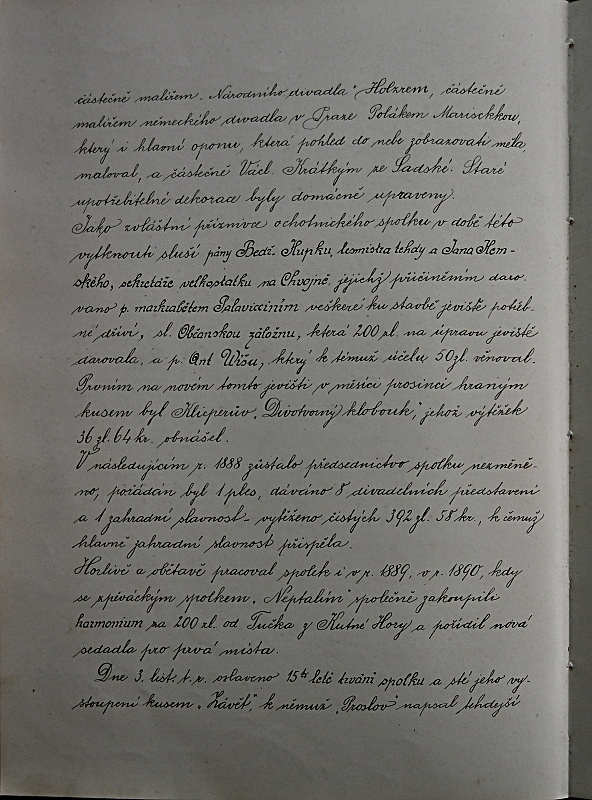 částečně malířem „Národního divadla" Holzrem, částečně
malířem německého divadla v Praze Polákem Marischkou,
který i hlavní oponu, která pohled do nebe zobrazovati měla,
maloval, a částečně Václ. Krátkým ze Sadské. Staré
upotřebitelné dekorace byly domácně upraveny.
Jako zvláštní příznivce ochotnického spolku v době této
vytknouti sluší pány Bedř. Kupku, lesmistra tehdy a Jana Hem-
ského, sekretáře velkostatku na Chvojně, jejichž přičiněním daro-
váno p. markrabětem Palaviciním veškeré ku stavbě jeviště potřeb-
né dříví, sl. Občanskou záložnu, která 200 zl. na úpravu jeviště
darovala, a p. Ant. Wišu, který k témuž účelu 50 zl. věnoval.
Prvním na novém tomto jevišti v měsíci prosinci hraným
kusem byl Klicperův „Divotvorný klobouk", jehož výtěžek
36 zl. 64 kr. obnášel.
V následujícím r. 1888 zůstalo předsednictvo spolku nezměně-
no, pořádán byl 1 ples, dáváno 8 divadelních představení
a 1 zahradní slavnost – vytěženo čistých 392 zl. 58 kr., k čemuž
hlavně zahradní slavnost přispěla.
Horlivě a obětavě pracoval spolek i v r. 1889, v r. 1890, kdy
se zpěváckým spolkem „Neptalim" společně zakoupili
harmonium za 200 zl. od Tučka z Kutné Hory a pořídil nová
sedadla pro prvá místa.
Dne 3. list. t. r. oslaveno 15ti leté trvání spolku a sté jeho vy-
stoupení kusem „Závěť", k němuž „Proslov" napsal tehdejší